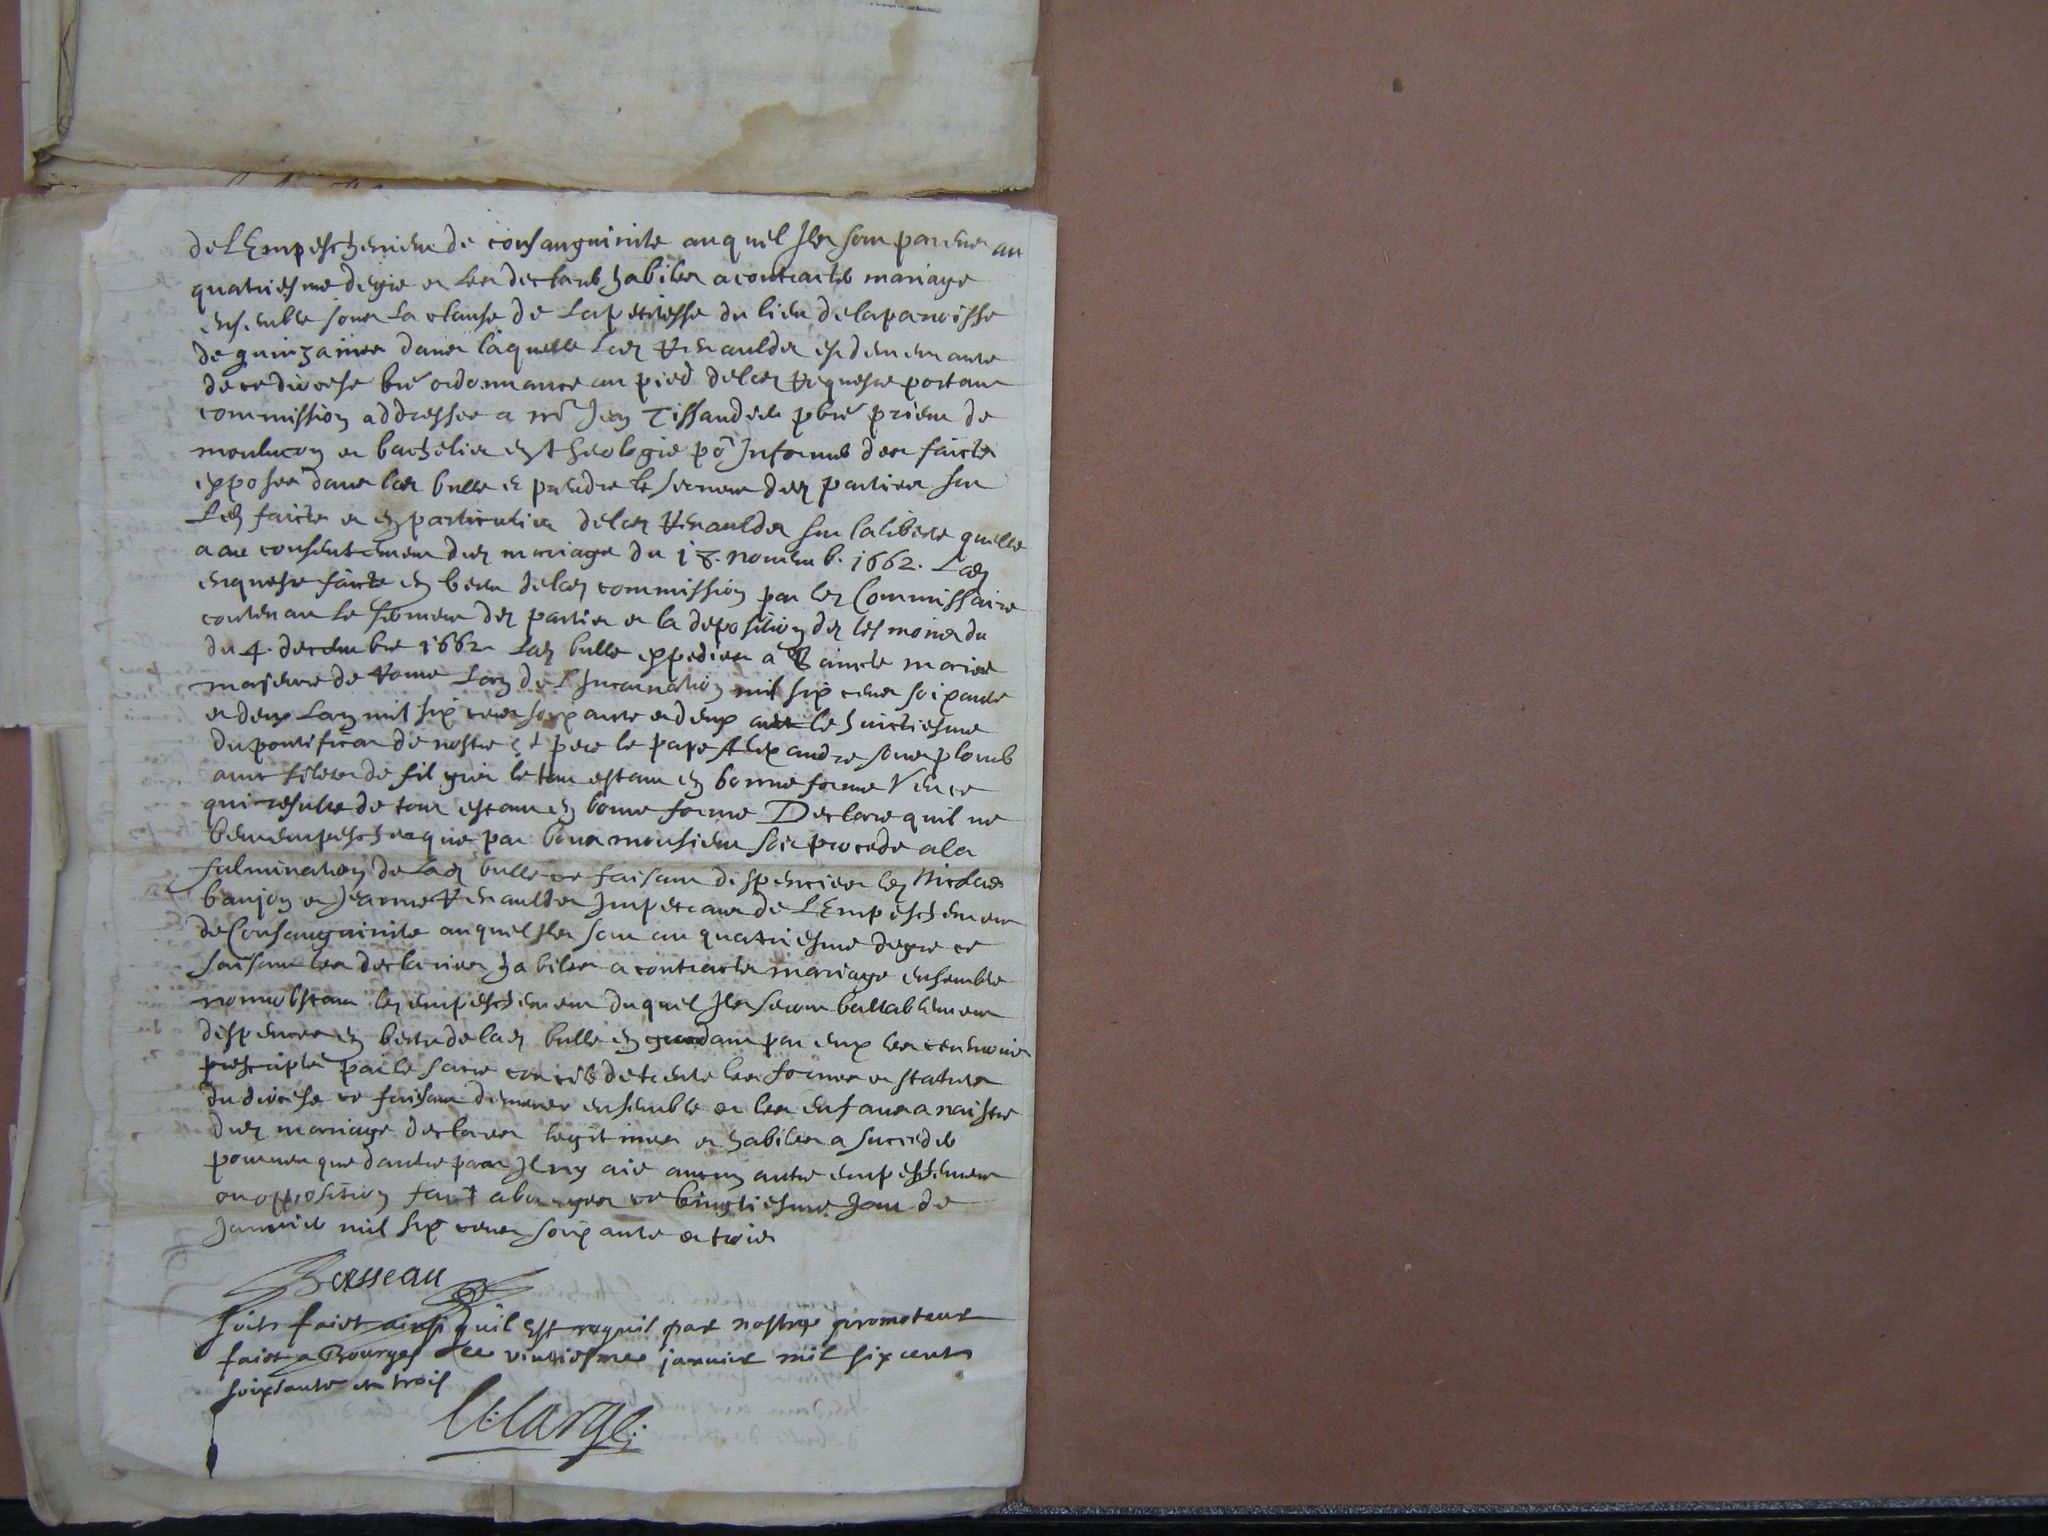 de L'Empeschement de consanguinite auquel Ilz sont parents au
quatriesme degre et Les declarer habiles a contracter mariage
ensemble soubz La clause de La petitesse du lieu de la parroisse
de quinzaines dans laquelle Lad Renauldes est demeurante
de ce diocese vre ordonnance au pied de lad Requeste portant
commission addressee a Mre Jean Tissandier pbre prieur de
monlucon et bachelier en theologie po Informer des faictz
exposez dans lad bulle et prendre le serment des parties sur
Lesd faictz et en particulier de lad Renauldes sur la liberte quelle
a au consentement dud mariage du 18. novemb. 1662. Lad
enqueste faicte en vertu de lad commission par led Commissaire
contenant le serment desd parties et la deposition des tesmoins du
du 4. decembre 1662 Lad bulle expediee a Saincte marie
majeure de Rome Lan de l'Incarnation mil six cens soixante
et deux Lan mil six cens soixante et deux le huictiesme
du pontificat de nostre St pere le pape Alexandre soubz plomb
avec filetz de fil gris le tout estant en bonne forme Veu ce
qui resulte de tout estant en bonne forme Declare quil ne
veut empescher que par vous monsieur soit procede a la
fulmination de Lad bulle ce faisant dispencier led Nicolas
baujon et Jeanne Renauldes Impetrans de L'Empeschement
de Consanguinite auquel Ilz sont au quatriesme degre ce
faisant les declarier habiles a contracter mariage ensemble
nonnobstant led empeschement duquel Ilz seront vallablement
dispencez en vertu de lad bulle en gardant par eux les ceremonies
prescriptes par le sacre concile de trente les formes et statutz
du diocese ce faisant demeurer ensemble et les enfans a naistre
dud mariage declarer legitimes et habiles a succeder
pourveu que dautre part Il ny aie aucun autre empeschement
ou opposition faict a bourges ce vingtiesme Jour de
Janvier mil six cens soixante et trois
Bersseau
soit faict ainsi quil est requis par nostre promoteur
faict a Bourges le vintiesme janvier mil six cents
soixsante et trois
Lelarge